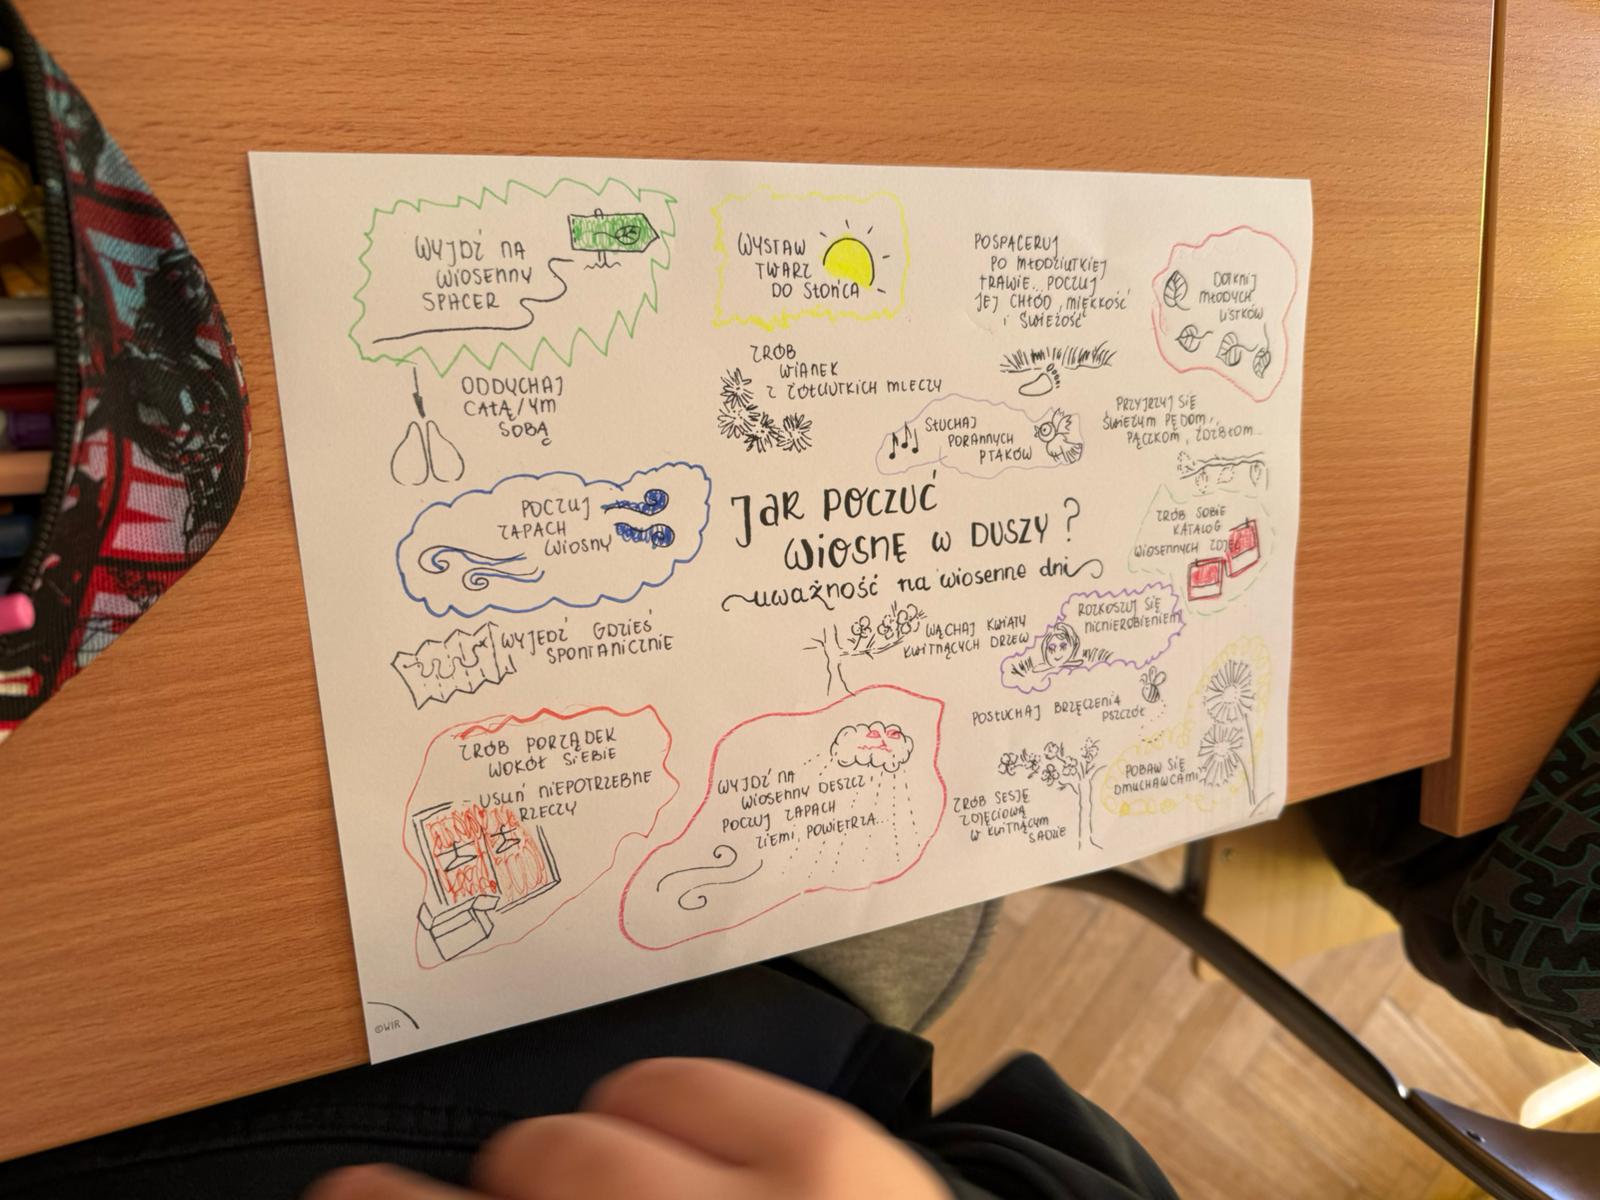 WYJDŹ NA
WIOSENNY
SPACER
WYSTAW
TWARZ
DO SŁOŃCA
POSPACERUJ
PO MŁODZIUTKIEJ
TRAWIE... POCZUJ
JEJ CHŁÓD, MIĘKKOŚĆ
I ŚWIEŻOŚĆ
DOTKNIJ
MŁODYCH
LISTKÓW
ODDYCHAJ
CAŁĄ/YM
SOBĄ
ZRÓB
WIANEK
Z ŻÓŁCIUTKICH MLECZY
SŁUCHAJ
PORANNYCH
PTAKÓW
PRZYJRZYJ SIĘ
ŚWIEŻYM PĘDOM,
PĄCZKOM, ŹDŹBŁOM...
POCZUJ
ZAPACH
WIOSNY
JAK POCZUĆ
WIOSNĘ W DUSZY?
uważność na wiosenne dni
ZRÓB SOBIE
KATALOG
WIOSENNYCH ZDJĘĆ
WYJEDŹ GDZIEŚ
SPONTANICZNIE
WĄCHAJ KWIATY
KWITNĄCYCH DRZEW
ROZKOSZUJ SIĘ
NICNIEROBIENIEM
POSŁUCHAJ BRZĘCZENIA
PSZCZÓŁ
ZRÓB PORZĄDEK
WOKÓŁ SIEBIE
- USUŃ NIEPOTRZEBNE
RZECZY
WYJDŹ NA
WIOSENNY DESZCZ
POCZUJ ZAPACH
ZIEMI, POWIETRZA...
ZRÓB SESJĘ
ZDJĘCIOWĄ
W KWITNĄCYM
SADZIE
POBAW SIĘ
DMUCHAWCAMI
©WIR